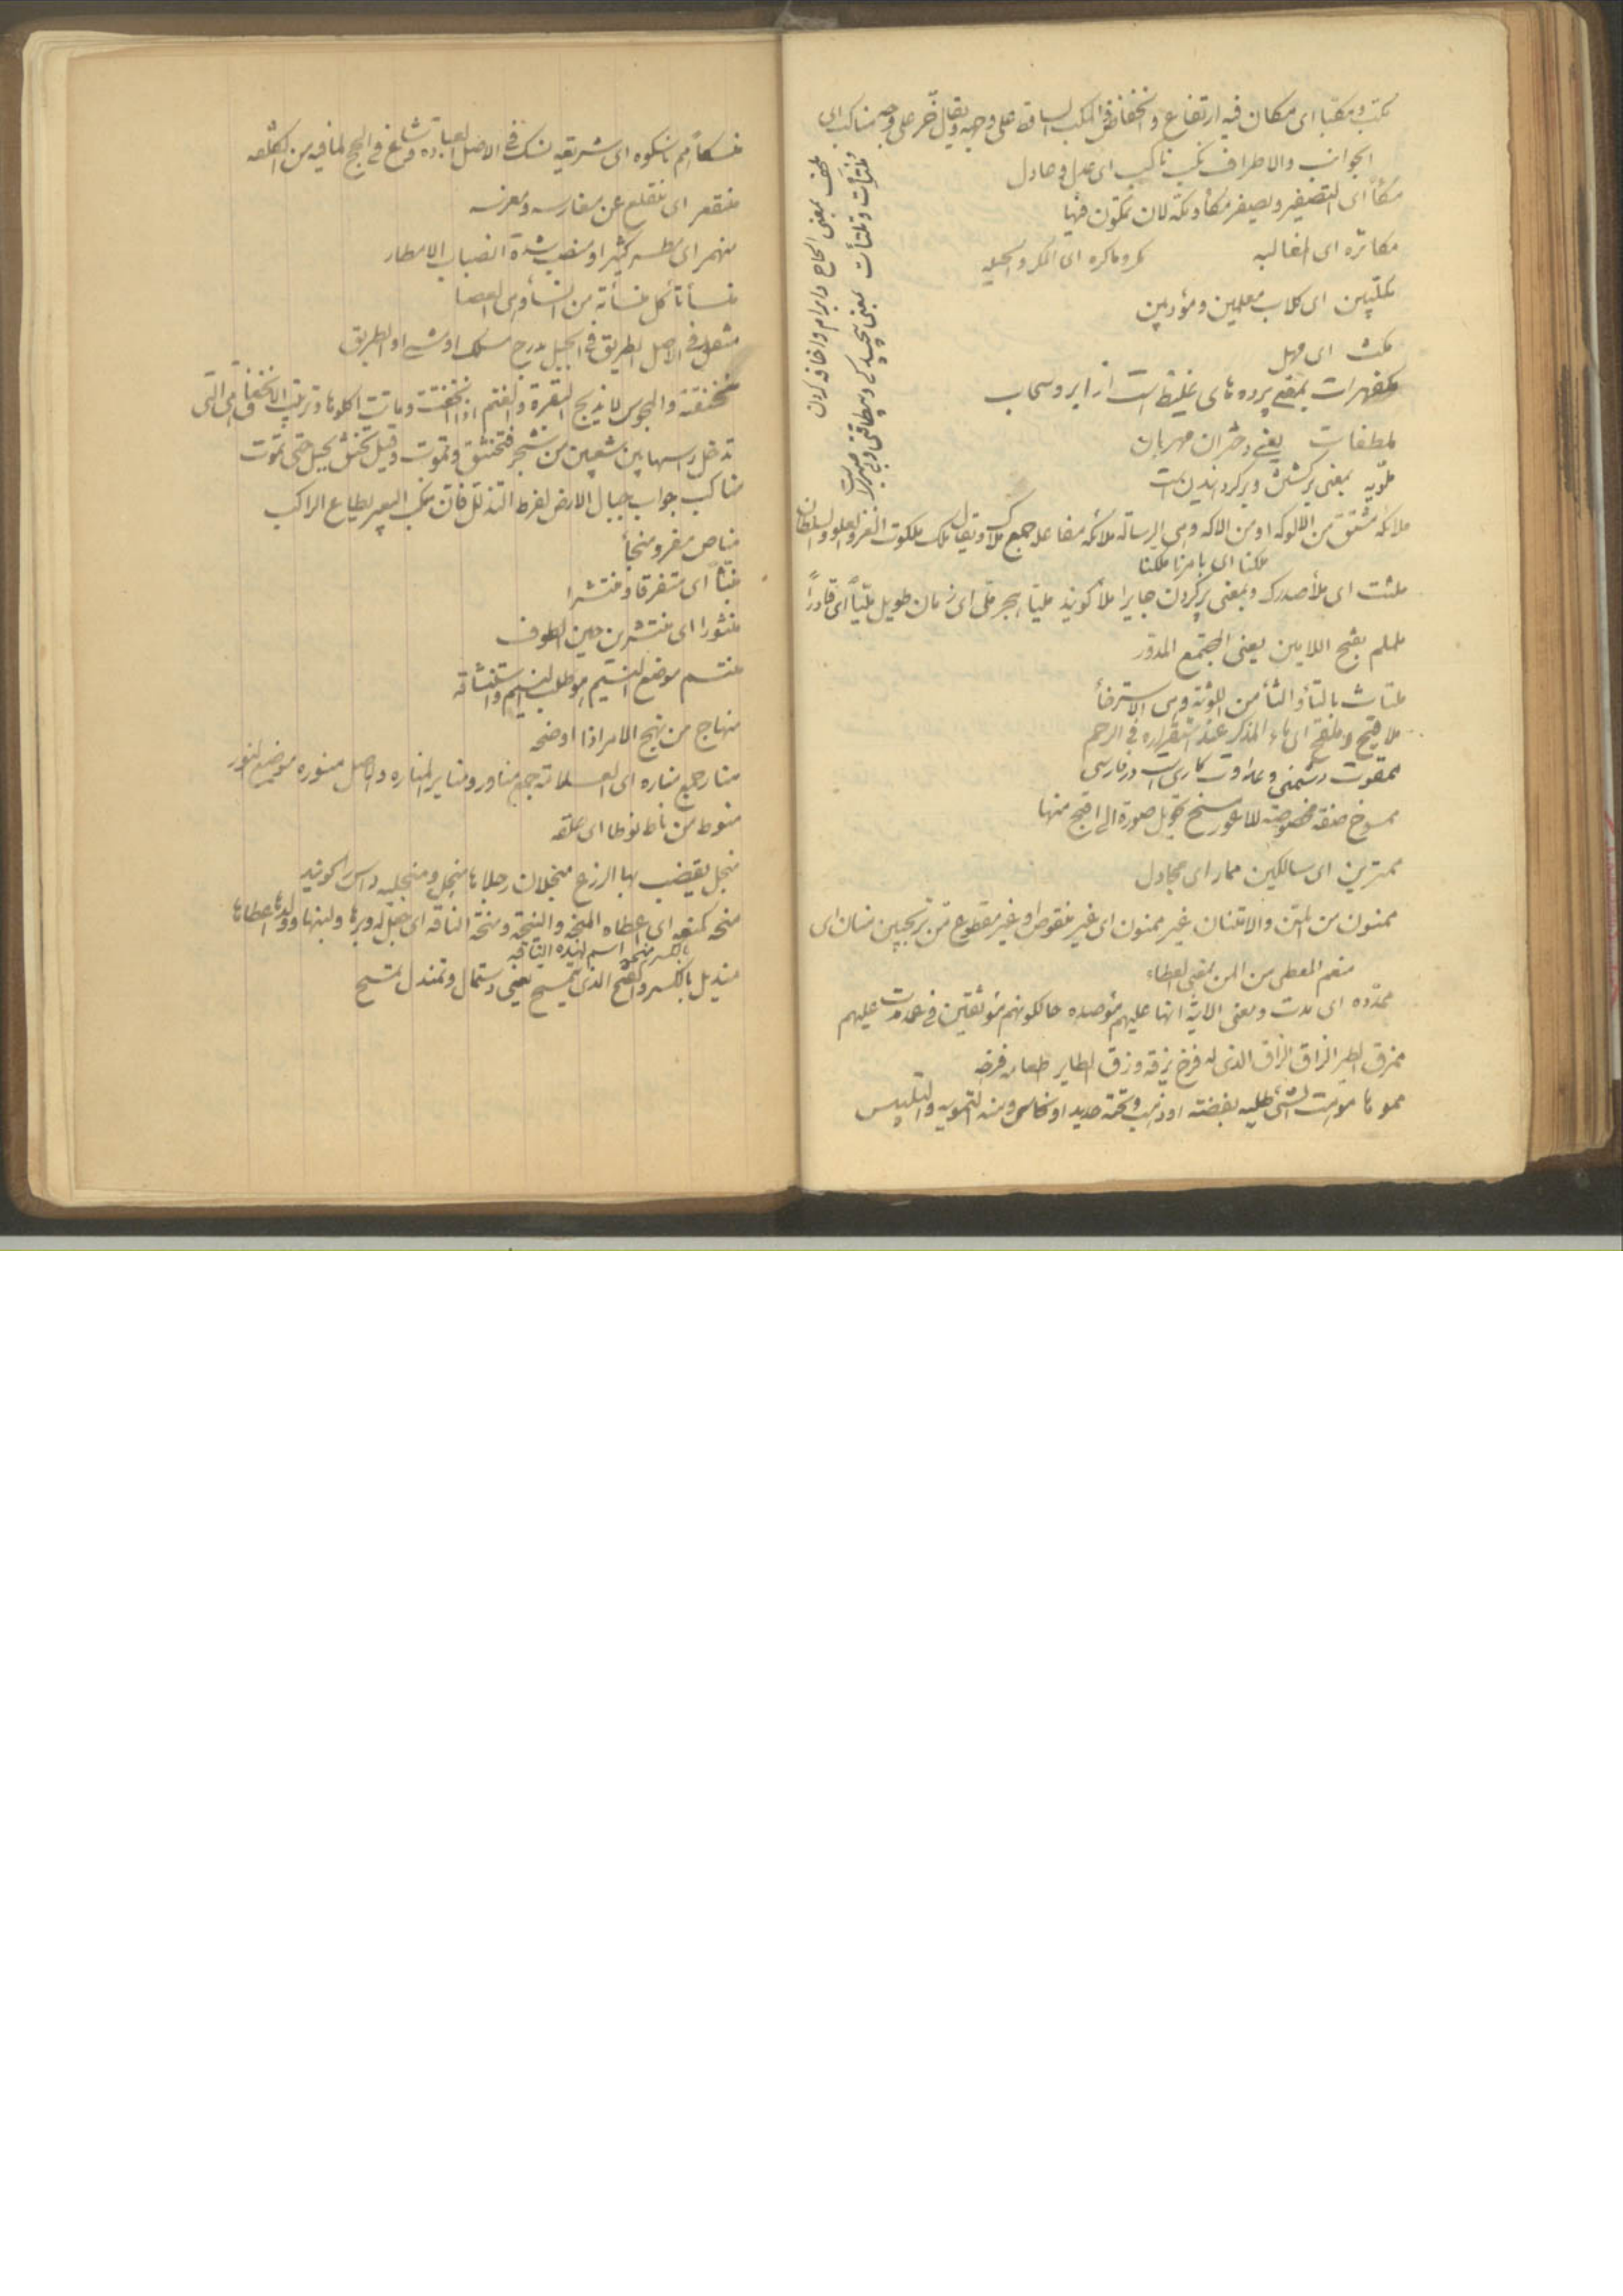 مکب و مکبا ای مکان فیه ارتفاع و انخفاض المکب الساقط علی وجهه و یقال خر علی وجهه مناکب ای
الجوانب والاطراف نکب ناکب ای عدل و عادل
مکأ ای التصفیر و یصفر مکأ و مکه لان تمکون فیها
مکاثره ای المغالبه مکر و ماکره ای المکر و الحیله
مکلبین ای کلاب معلمین و مؤدبین
مکث ای مهل
مکفهرات بمعنی پرده های غلیظ است از ابر و سحاب
ملطفات یعنی دختران مهربان
ملویه بمعنی برگشتن و برگردانیدن است
ملائکه مشتق من الالوکه او من الاکه و هی الرساله ملائکه مفاعله جمع ملأک و یقال ملک ملکوت العز و العلو و السلطان
ملکنا ای بامرنا ملکنا
ملئت ای ملأ صدرک و بمعنی پر کردن جایرا ملأ گویند ملیا هجر ملی ای زمان طویل ملیا ای قادرا
ململم بفتح اللامین یعنی المجتمع المدور
ملتاث بالتأ و الثأ من اللوثه و هی الاسترخأ
ملاقیح و ملقح ای ماء المذکر عند استقراره فی الرحم
ممقوت دشمنی و عداوت کاری است در فارسی
ممسوخ صفة مخصوصه للاعور مسخ تحویل صورة الی اقبح منها
ممترین ای سالکین ممار ای مجادل
ممنون من المن والامتنان غیر ممنون ای غیر منقوص او غیر مقطوع من ترنجبین منان ای
منعم المعطی من المن بمعنی العطاء
ممدده ای مدت و معنی الایه انها علیهم مؤصده حالکونهم موثقین فی عمد مدت علیهم
ممزق الطیر الزاق الزاق الذی له فرخ یزقه و زق الطایر طعامه فرخه
مموها موهت الشئ طلیه بفضته او ذهب و تحته حدید او نحاس و منه التمویه و التلبیس
ملحف بمعنی الحاح و ابرام و اضافه کردن
منسکا هم ناسکوه ای شریعه نسک فی الاصل العبادة شاع فی الحج لما فیه من الکلفه
منقعر ای منقلع عن مغارسه و مغرسه
منهمر ای مطر کثیر او منصب شدة انصباب الامطار
منسأتا کل منسأته من النسأ و هی العصا
منقل فی الاصل الطریق فی الجبل مدرج مسلک او شئ او الطریق
منخنقة والمجوس لا یذبح البقرة و الغنم اذا انخنقت و ماتت اکلوها و ترتیب الانخناق هی التی
تدخل راسها بین شعبین من شجر فتختنق و تموت و قیل تخنق بحبل حتی تموت
مناکب جوانب جبال الارض لفرط التذلل فان منکب البعیر یطاع الراکب
مناص مفر و منجأ
منبثا ای متفرقا و منتشرا
منثورا ای منتشرین حین الطوف
منتسم موضع النسیم ای موطلب النسیم و استنشاقه
منهاج من نهج الامر اذا اوضحه
منار جمع مناره ای العلامة جمع مناور و منایر المناره و الاصل منوره موضع النور
منوط من ناط نوطا ای علقه
منجل یقضب بها الزرع منجلان رجلا با منجل و منجلیه داس را گویند
منحه کمنعه ای اعطاه المنحه و المنیحه و منحه الناقه ای جعل له وبرها و لبنها و ولدها اعطاها
بالکسر منحه اسم لهذه الناقه
مندیل بالکسر و الفتح الذی یتمسح یعنی دستمال و تمندل تمسح